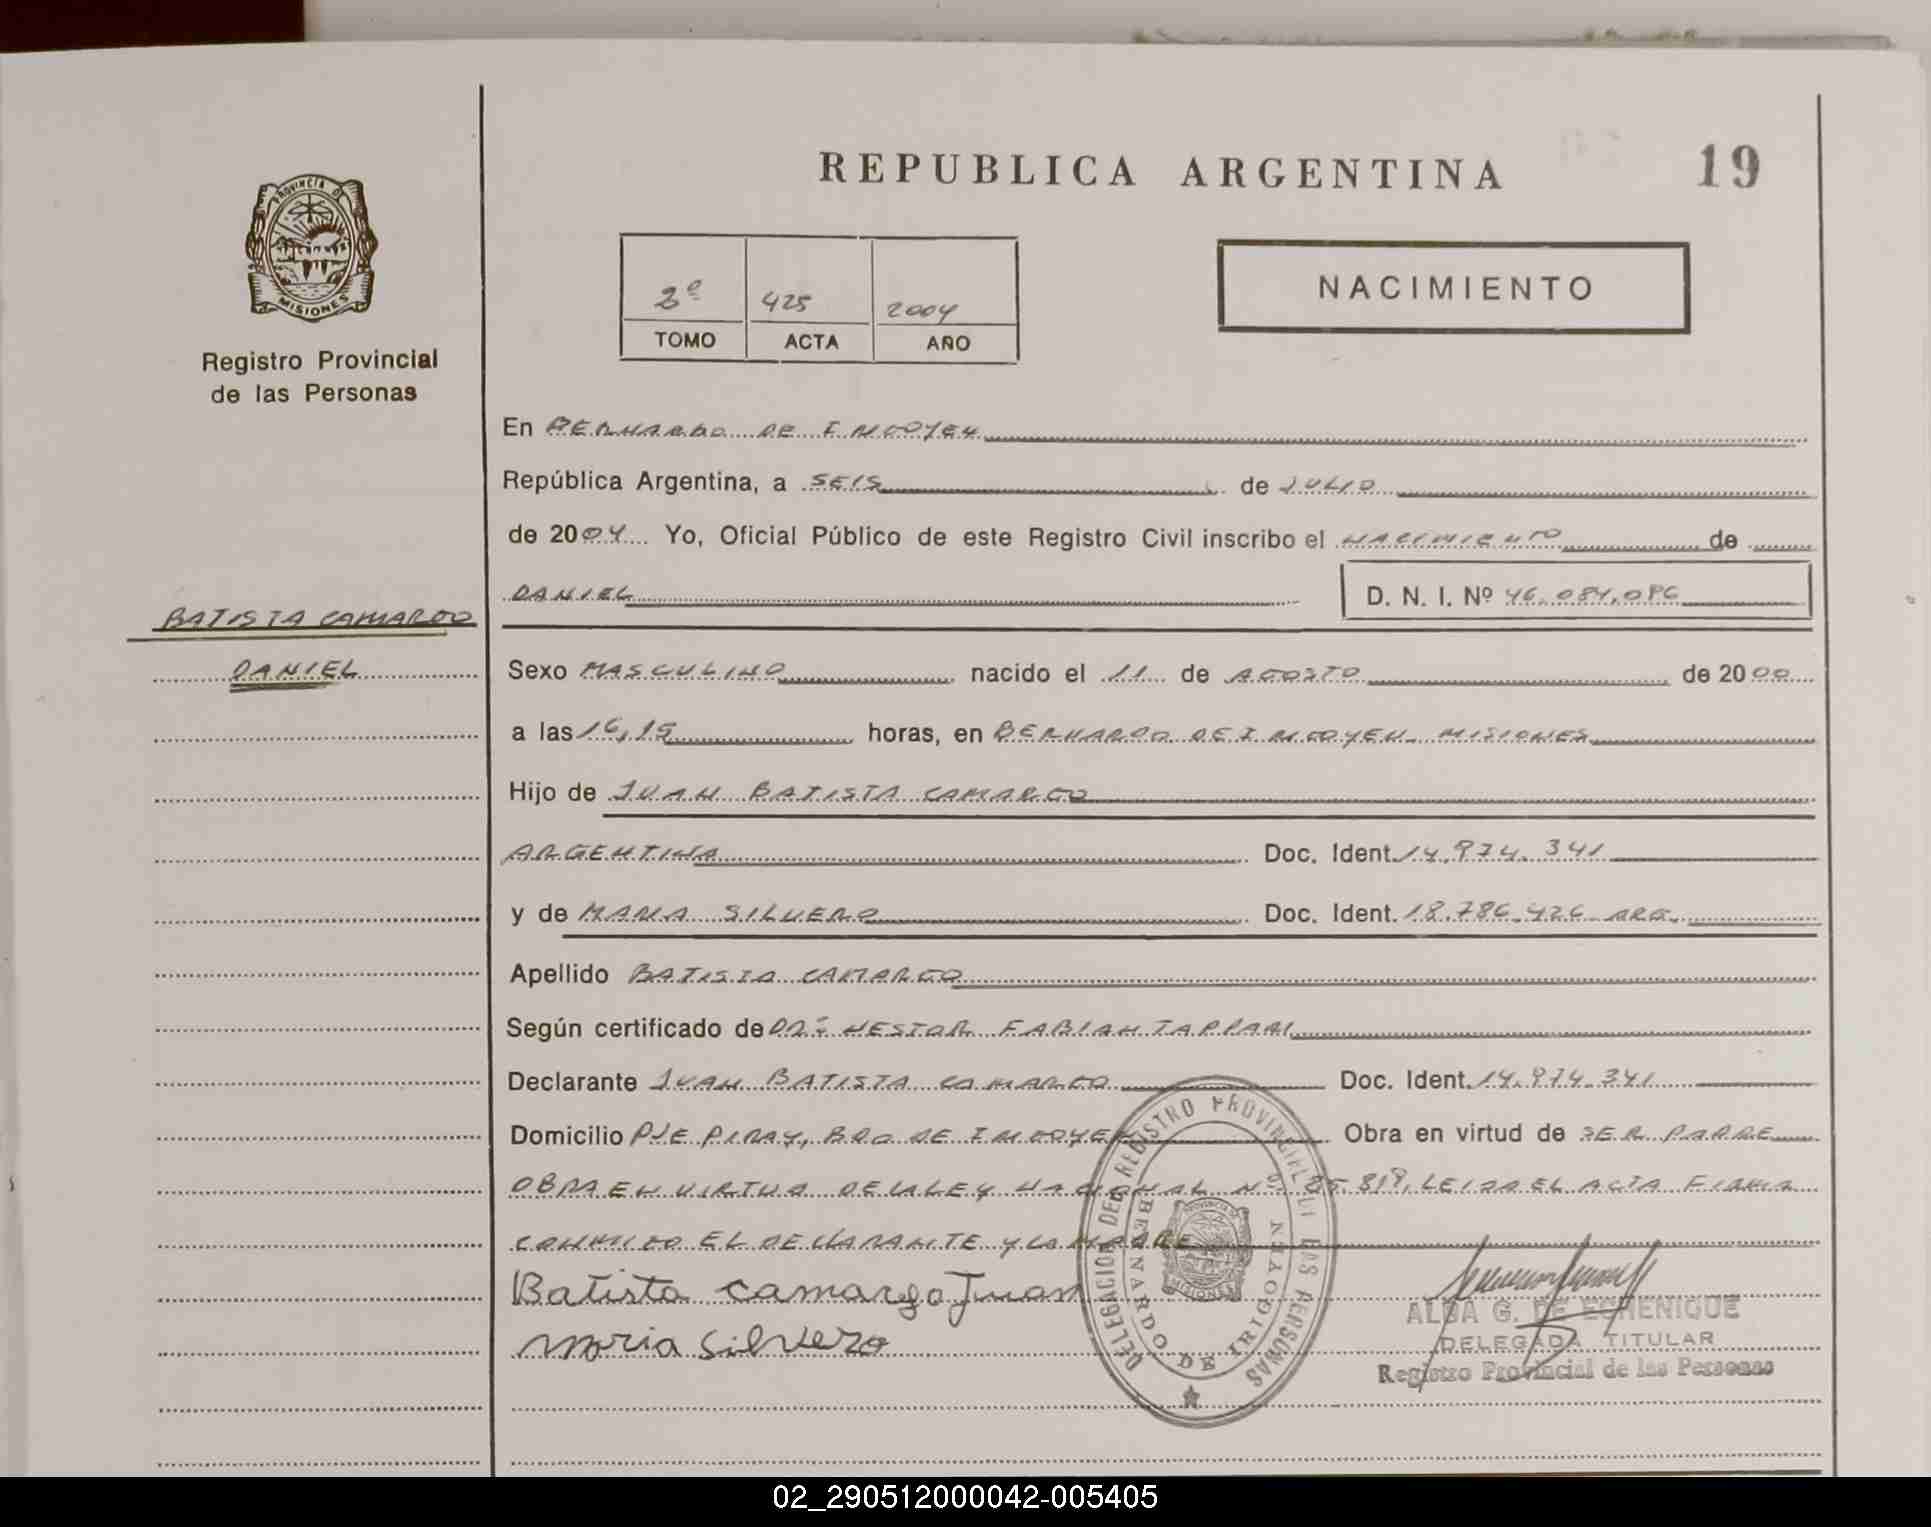 REPUBLICA ARGENTINA
19
PROVINCIA DE
MISIONES
Registro Provincial
de las Personas
425 2004
TOMO ACTA AÑO
NACIMIENTO
En BERNARDO DE IRIGOYEN
República Argentina, a SEIS de JULIO
de 2004 Yo, Oficial Público de este Registro Civil inscribo el NACIMIENTO de
DANIEL D. N. I. Nº 46.084.086
BATISTA CAMARGO
DANIEL
Sexo MASCULINO nacido el 11 de AGOSTO de 2000
a las 16,15 horas, en BERNARDO DE IRIGOYEN MISIONES
Hijo de JUAN BATISTA CAMARGO
ARGENTINA Doc. Ident. 14.974.341
y de MARIA SILVERO Doc. Ident. 18.786.426 ARG.
Apellido BATISTA CAMARGO
Según certificado de DR. NESTOR FABIAN TAPPARI
Declarante JUAN BATISTA CAMARGO Doc. Ident. 14.974.341
Domicilio PJE PIRAY, BDO DE IRIGOYEN Obra en virtud de SER PADRE
OBRA EN VIRTUD DE LA LEY NACIONAL Nº 25.819, LEIDA EL ACTA FIRMA
CONMIGO EL DECLARANTE Y LA MADRE
Batista camargo Juan
maria Silvero
DELEGACION DEL REGISTRO PROVINCIAL DE LAS PERSONAS
BERNARDO DE IRIGOYEN
MISIONES
ALBA G. DE ECHENIQUE
DELEGADA TITULAR
Registro Provincial de las Personas
02_290512000042-005405